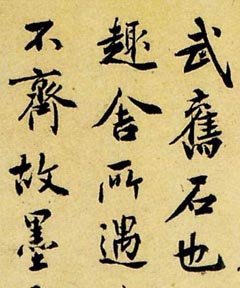 武舊石也
趣舍所遇
不齊故墨